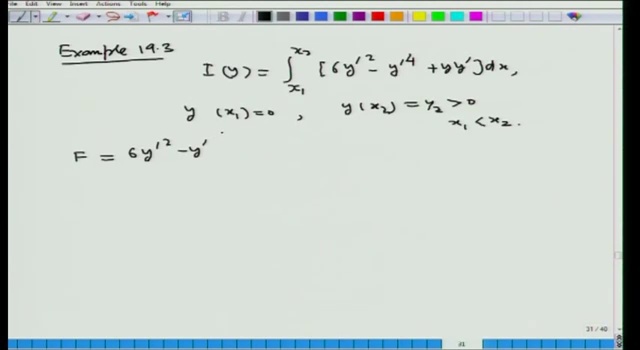 Edit View Insert Actions Tools Help
Example 19.3
I(y) = ∫_{x₁}^{x₂} [6y'² - y'⁴ + yy'] dx,
y(x₁) = 0, y(x₂) = y₂ > 0
x₁ < x₂.
F = 6y'² - y'
31 / 40
31